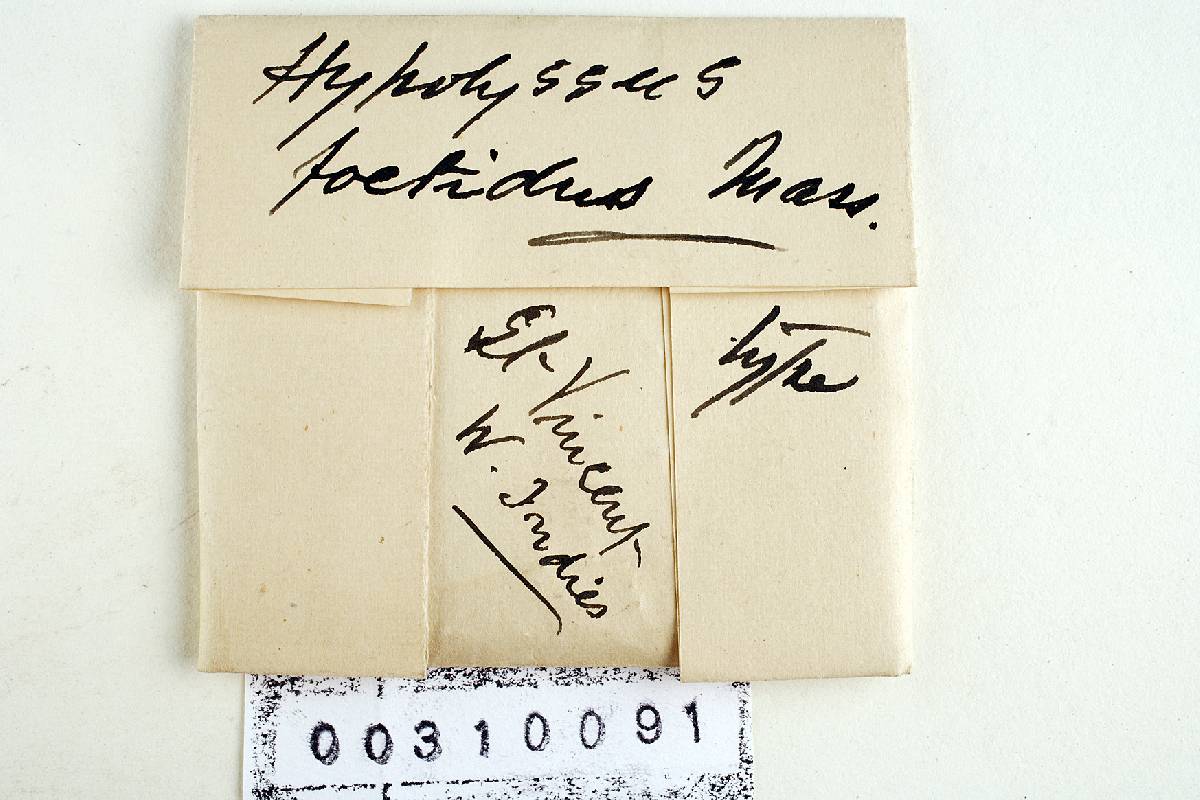 Hypolyssus
foetidus Mass.
type
St Vincent
W. Indies
00310091